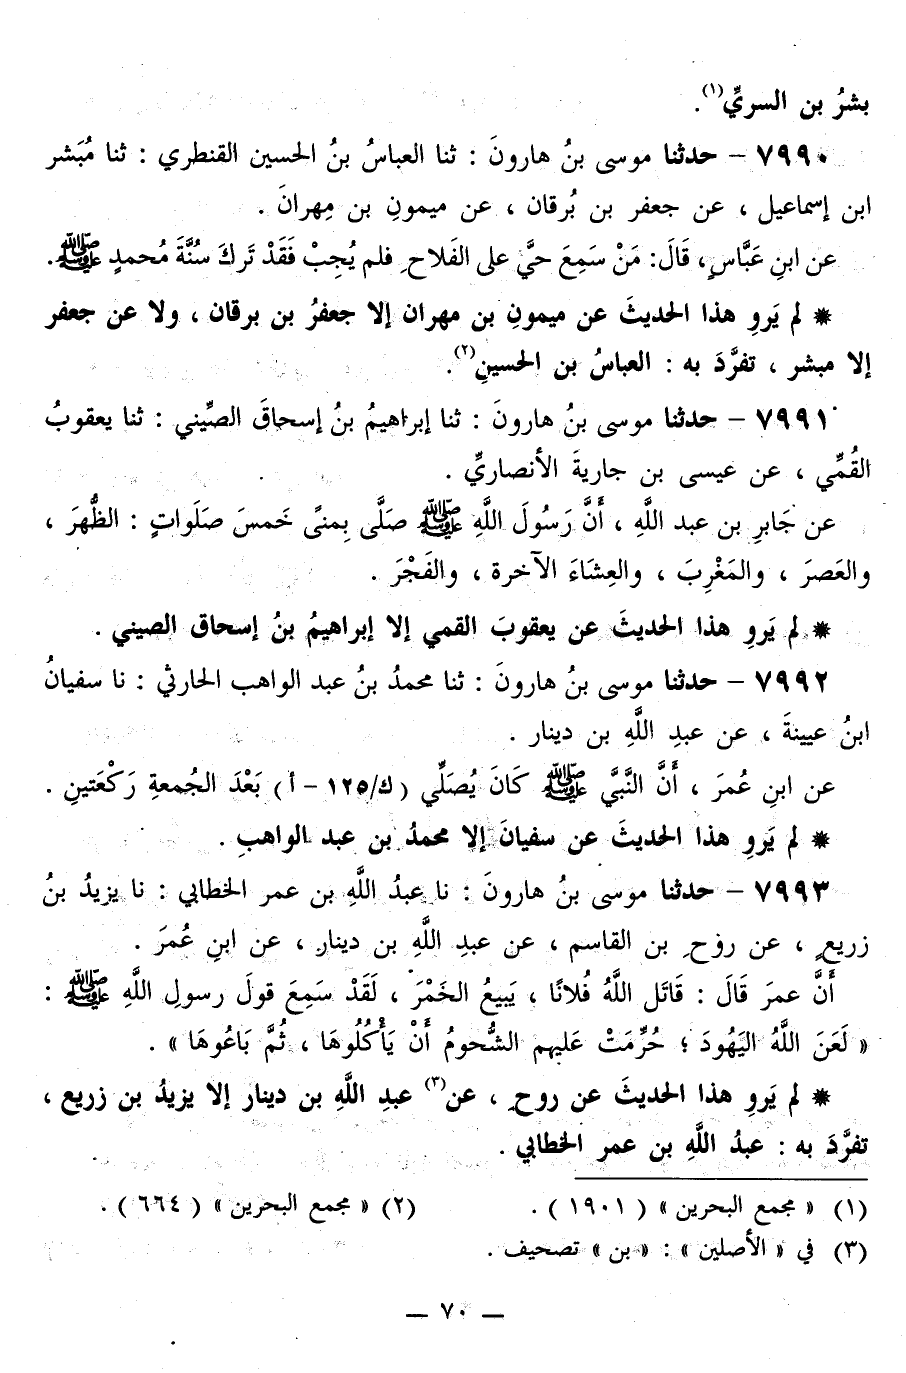 بشرُ بن السريِّ(١).
٧٩٩٠ – حدثنا موسى بنُ هارونَ : ثنا العباسُ بنُ الحسين القنطري : ثنا مُبَشر
ابن إسماعيل ، عن جعفر بن بُرقان ، عن ميمونِ بن مِهرانَ .
عن ابنِ عَبَّاسٍ، قَالَ: مَنْ سَمِعَ حيَّ على الفَلاحِ فلم يُجِبْ فَقَدْ تَركَ سُنَّةَ مُحمدٍ ﷺ.
* لم يَروِ هذا الحديثَ عن ميمونِ بن مهران إلا جعفرُ بن برقان ، ولا عن جعفر
إلا مبشر ، تفرَّدَ به : العباسُ بن الحسينِ(٢).
٧٩٩١ – حدثنا موسى بنُ هارونَ : ثنا إبراهيمُ بنُ إسحاقَ الصِّيني : ثنا يعقوبُ
القُمِّي ، عن عيسى بن جاريةَ الأنصاريِّ .
عن جَابرِ بن عبد اللَّهِ ، أَنَّ رَسُولَ اللَّهِ ﷺ صَلَّى بِمنىً خَمسَ صَلَواتٍ : الظُّهرَ ،
والعَصرَ ، والمَغْرِبَ ، والعِشَاءَ الآخرة ، والفَجْرَ .
* لم يَروِ هذا الحديثَ عن يعقوبَ القمي إلا إبراهيمُ بنُ إسحاق الصيني .
٧٩٩٢ – حدثنا موسى بنُ هارونَ : ثنا محمدُ بنُ عبد الواهب الحارثي : نا سفيانُ
ابنُ عيينةَ ، عن عبدِ اللَّهِ بن دينار .
عن ابنِ عُمرَ ، أَنَّ النَّبيَّ ﷺ كَانَ يُصَلِّي (ك/١٢٥ – أ) بَعْدَ الجُمعةِ رَكْعَتينِ .
* لم يَروِ هذا الحديثَ عن سفيانَ إلا محمدُ بن عبد الواهبِ .
٧٩٩٣ – حدثنا موسى بنُ هارونَ : نا عبدُ اللَّهِ بن عمر الخطابي : نا يزيدُ بنُ
زريعٍ ، عن روْحِ بن القاسم ، عن عبدِ اللَّهِ بن دينارٍ ، عن ابنِ عُمرَ .
أَنَّ عمرَ قَالَ : قَاتَل اللَّهُ فُلانًا ، يَبيعُ الخَمْرَ ، لَقَدْ سَمِعَ قولَ رسولِ اللَّهِ ﷺ :
« لَعَنَ اللَّهُ اليَهُودَ ؛ حُرِّمَتْ عَليهم الشُّحومُ أَنْ يَأْكُلُوهَا ، ثُمَّ بَاعُوهَا » .
* لم يَروِ هذا الحديثَ عن روحٍ ، عن(٣) عبدِ اللَّهِ بن دينار إلا يزيدُ بن زريع ،
تفرَّدَ به : عبدُ اللَّهِ بن عمر الخطابي .
(١) « مجمع البحرين » ( ١٩٠١ ) . (٢) « مجمع البحرين » ( ٦٦٤ ) .
(٣) في « الأصلين » : « بن » تصحيف .
— ٧٠ —